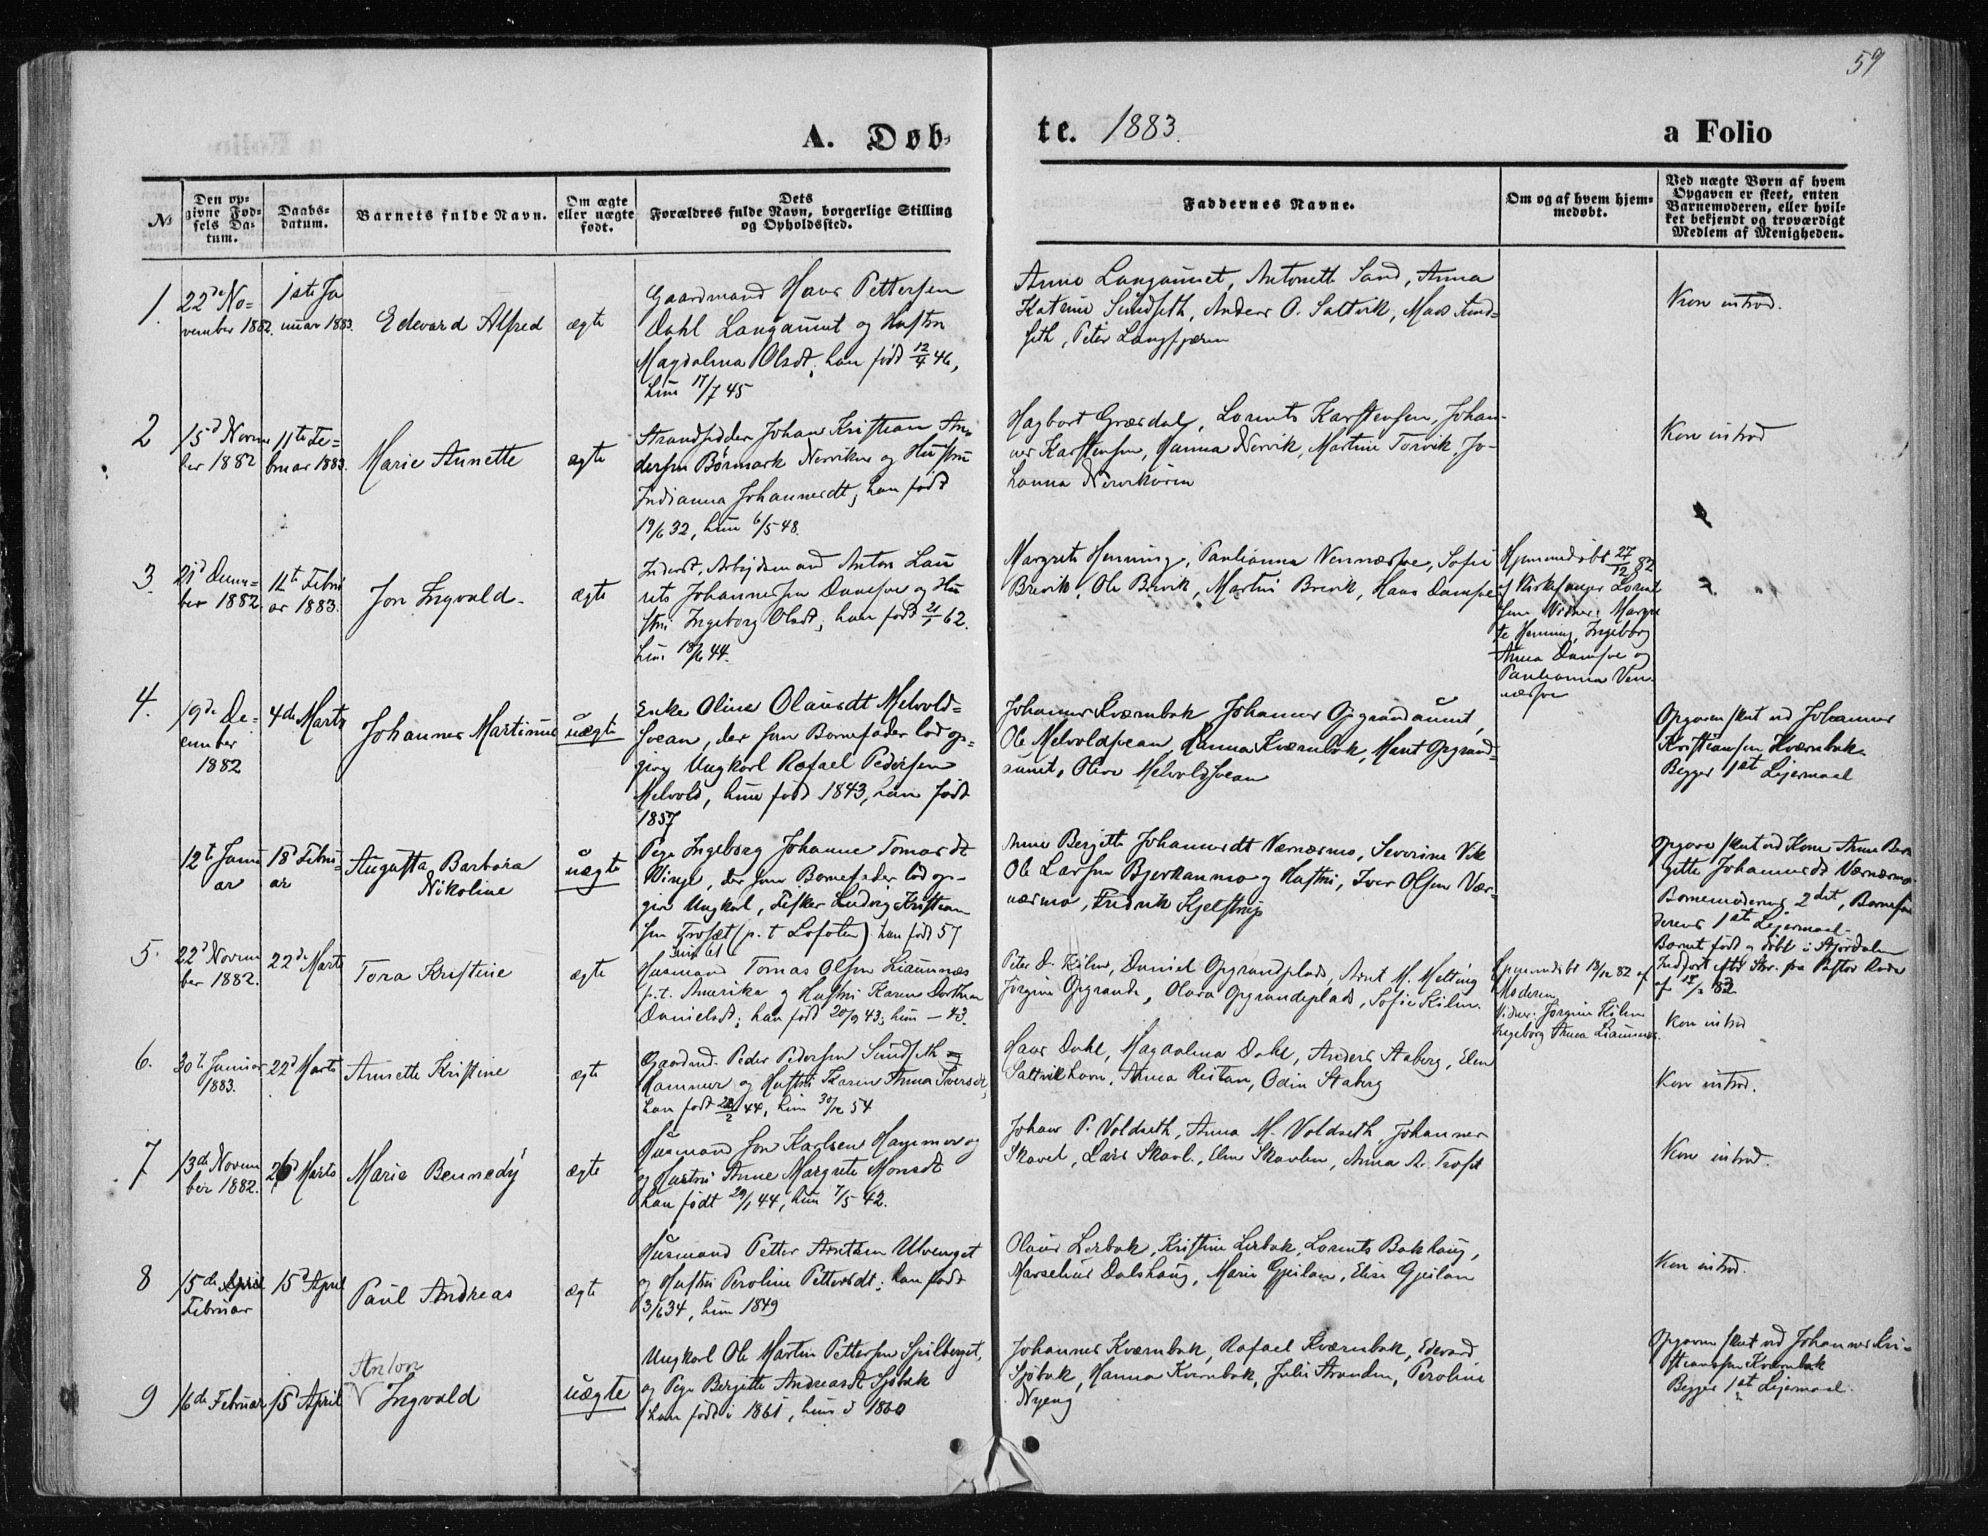 59
A. Døb-
te. 1883.
a Folio
№
Den op-
givne Fød-
sels Da-
tum.
Daabs-
datum.
Barnets fulde Navn.
Om ægte
eller uægte
født.
Dets
Forældres fulde Navn, borgerlige Stilling
og Opholdssted.
Faddernes Navne.
Om og af hvem hjem-
medøbt.
Ved uægte Børn af hvem
Opgaven er skeet, enten
Barnemoderen, eller hvil-
ket bekjendt og troværdigt
Medlem af Menigheden.
1.
22de No-
vember 1882.
1ste Ja
nuar 1883.
Edevard Alfred
ægte
Gaardmand Hans Pettersen
Dahl Langaunet og Hustru
Magdalena Olsdt; han født 12/4 46,
hun 17/7 45
Anne Langaunet, Antonette Sand, Anna
Katrine Sundseth, Anders O. Saltvik, Mads Sund-
seth, Peter
Kon introd.
2
15d Novem
ber 1882
11te Fe-
bruar 1883.
Marie Annette
ægte
Strandsidder Johan Kristian An-
dersen Børmark og Hustru
Indianna Johannesdt, han født
19/6 32, hun 6/5 48.
Hagbart Græsdal, Lorents Karstensen, Johan-
nes Karstensen, Hanna Nervik, Martine Torvik, Jo-
hanna
Kon introd
3.
21d Decem-
ber 1882.
11te Febru
ar 1883.
Jon Ingvald.
ægte
Inderst, Arbejdsmand Anton Lau
rits Johannesen Damsve og Hu
stru Ingeborg Olsdt, han født 21/1 62.
hun 18/6 44.
Margrete Henning, Paulianna Vennæsve, Sofie
Brevik, Ole Brevik, Martin Brevik, Hans Damsve
Hjemmedøbt 27/12 82
af Kirkesanger Lorent
sen Vidner: Margre
te Henning, Ingeborg
Anna Damsve og
Paulianna Ven
næsve
4.
19de De-
cember
1882
4de Marts
Johannes Martinus
uægte
Enke Oline Olausdt Melvold-
svean, der som Barnefader lod op-
give Ungkarl Rafael Pedersen
Melvold, hun født 1843, han født
1857
Johannes Kværnbak, Johannes Opgrandaunet,
Ole Melvoldsvean, Hanna Kværnbak, Marit Opgrand-
aunet, Olava Melvoldsvean
Opgaven skeet ved Johannes
Kristiansen Kværnbak
Begges 1ste Lejermaal
12te Janu
ar
18d Febru-
ar
Augusta Barbara
Nikoline
uægte
Pige Ingeborg Johanne Tomasdt
Vinge, der som Barnefader lod op-
give Ungkarl, Fisker Ludvig Kristian
sen Frosæt (p. t. Lofoten) han født 57
hun 61
Anne Bergitte Johannesdt Værnæsmo, Severine Vik
Ole Larsen Bjerkanmo og Hustru, Iver Olsen Vær-
næsmo, Fredrik Kjelstrup
Opgave skeet ved Kone Anne Ber
gitte Johannesdt Værnæsmo.
Barnemoderens 2det, Barnefa
derens 1ste Lejermaal.
Barnet født og døbt i Stjørdalen
Indført efter Skr. fra Pastor Rode
af 17/2 83
5.
22d Novem
ber 1882.
22de Marts
Tora Kristine
ægte
Husmand Tomas Olsen Liaunnæs
p. t. Amerika og Hustru Karen Dorthea
Danielsdt; han født 20/9 43; hun — 43.
Peter D. Kilen, Daniel Opgrandplads, Arnt M. Melting
Jørgine Opgrande, Olava Opgrandeplads, Sofie Kilen.
Hjemmedøbt 18/12 82 af
Moderen
Vidner: Jørgine Kilen
Ingeborg Anna Liaunnæs.
Kon introd
6.
30te Januar
1883.
22d Marts
Annette Kristine
ægte
Gaardmd. Peder Pedersen Sundseth
Hammer og Hustru Karen Anna Iversdt,
han født 22/2 44, hun 30/12 54
Hans Dahl, Magdalena Dahl, Anders Staberg, Elen
Saltvikhavn, Anna Reitan, Odin Staberg
Kon introd.
7
13de Novem
ber 1882.
26 Marts
Marie Bennedy
ægte
Husmand Jon Karlsen Hammer og
og Hustru Anne Margrete Monsdt
han født 29/1 44, hun 7/5 42.
Johan P. Voldseth, Anna M. Voldseth, Johannes
Skavel, Lars Skavl., Elen Skavlen, Anna A.
Kon introd.
8
15de April
Februar
15d April
Paul Andreas
ægte
Husmand Petter Arntsen Ulvenget
og Hustru Peroline Pettersdt. han født
3/6 34, hun 1849
Olaus Lerbak, Kristine Lerbak, Lorents Bakhaug,
Marselius Dalshaug, Marie Gjeilan, Elise Gjeilan
Kon introd.
9
16de Februar
15 April
Anton
Ingvald
uægte
Ungkarl Ole Martin Pettersen Spilberget,
og Pige Bergitte Andreasdt Sjøbak
han født i 1861, hun i 1860
Johannes Kværnbak, Rafael Kværnbak, Edevard
Sjøbak, Hanna Kværnbak, Julie Stranden, Peroline
Nyeng
Opgaven skeet ved Johannes Kri-
stianssen Kværnbak
Begges 1ste Lejermaal.